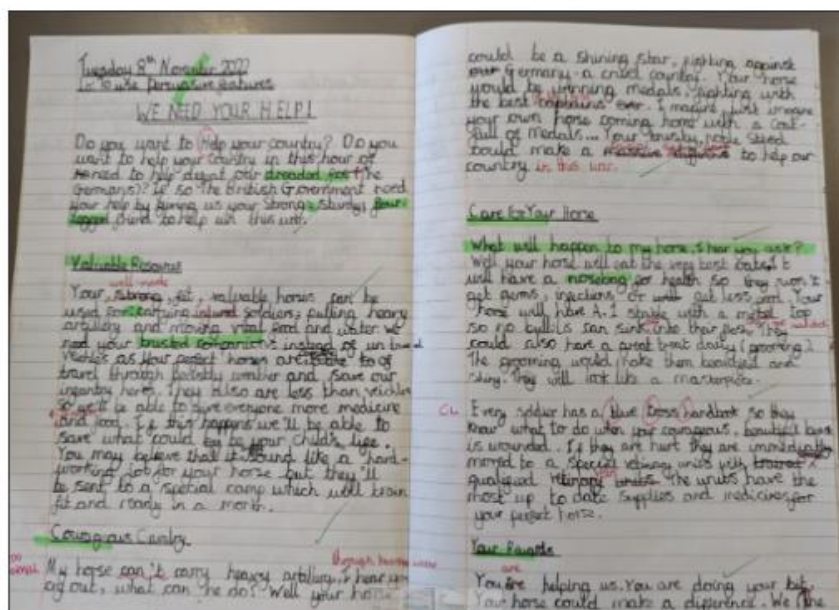 Tuesday 8th November 2022
L: To use Persuasive features
WE NEED YOUR HELP!
Do you want to Help your country? Do you
want to help your country in this hour of
need to help defeat our dreaded foe (the
Germans)? If so the British Government need
your help by giving us your strong, sturdy, four-
legged friend to help win this war.
Valuable Resource
well-made
Your, strong, fit, valuable horses can be
used for carrying injured soldiers, pulling heavy
artillery and moving vital food and water. We
need your trusted companions instead of
as your perfect horses are able to
travel through weather and save our
infantry heros. They also are less than veichles
so we'll be able to give everyone more medicine
and food. If this happens we'll be able to
save what could be your child's life.
You may believe that it sound like a hard-
working job for your horse but they'll
be sent to a special camp which will train
fit and ready in a month.
Courageous Cavalry
My horse can't carry heavy artillery, I hear you
cry out, what can he do? Well your horse
could be a shining star, fighting against
Germany - a cruel country. Your horse
would be winning medals, fighting with
the best captains ever. Imagine, just imagine
your own horse coming home with a coat
full of medals... Your trusty, noble steed
could make a massive to help our
country in this war.
Care for Your Horse
What will happen to my horse, I hear you ask?
Well your horse will eat the very best oats. It
will have a nosebag for health so they won't
get germs, or get less food. Your
horse will have A.1 stable with a metal top
so no bullets can sink into their flesh. They
could also have a great treat daily (grooming).
The grooming would make them beautiful and
shiny. They will look like a masterpiece.
CL
Every soldier has a Blue Cross handbook so they
know what to do when your courageous, beautiful
is wounded. If they are hurt they are immediately
moved to a special units with
qualified units. The units have the
most up to date supplies and medicines for
your perfect horse.
Your
are
You're helping us. You are doing your bit.
Your horse could make a difference. We (the